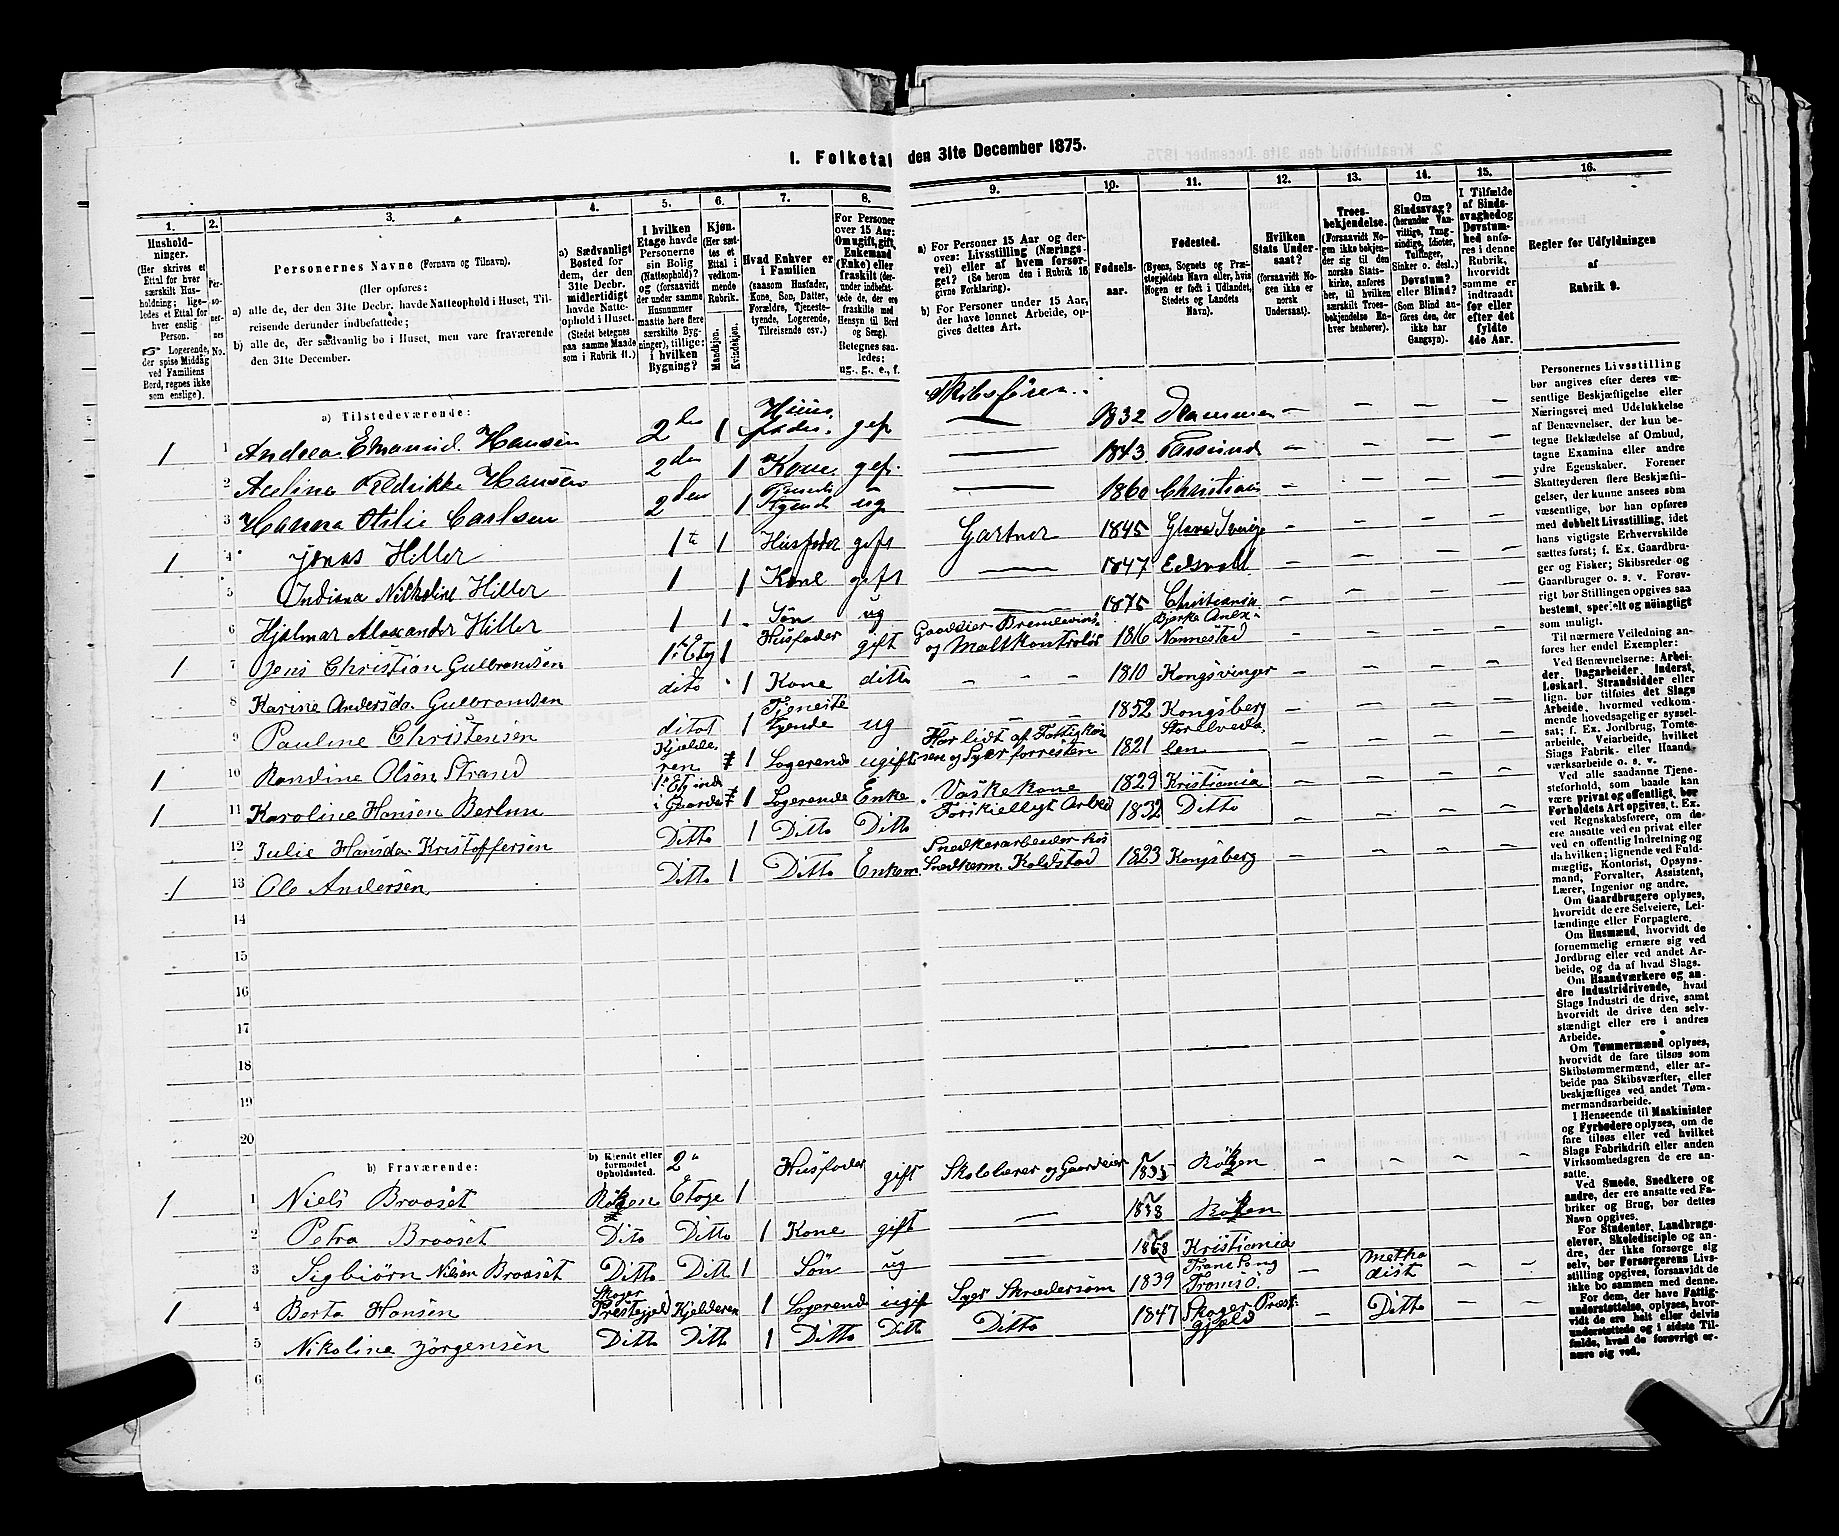 1. Folketal den 31te December 1875.
1. Husholdninger. (Her skrives et Ettal for hver særskilt Husholdning; ligeledes et Ettal for hver enslig Person. Logerende, der spise Middag ved Familiens Bord, regnes ikke som enslige).
2. Personernes No.
3. Personernes Navne (Fornavn og Tilnavn).
(Her opføres:
a) alle de, der den 31te Decbr. havde Natteophold i Huset, Tilreisende derunder indbefattede;
b) alle de, der sædvanlig bo i Huset, men vare fraværende den 31te December.
4. a) Sædvanligt Bosted for dem, der den 31te Decbr. midlertidigt havde Natteophold i Huset. (Stedet betegnes paa samme Maade som i Rubrik 11.)
5. I hvilken Etage havde Personerne sin Bolig (Natteophold)? og (forsaavidt der under samme Husnummer maatte høre flere særskilte Bygninger), tillige: i hvilken Bygning?
6. Kjøn. (Her sættes et Ettal i vedkommende Rubrik.
Mandkjøn. Kvindekjøn.
7. Hvad Enhver er i Familien (saasom Husfader, Kone, Søn, Datter, Forældre, Tjenestetyende, Logerende, Tilreisende osv.)
8. For Personer over 15 Aar: Om ugift, gift, Enkemand (Enke) eller fraskilt (derunder indbefattede de, der ere fraskilte med Hensyn til Bord og Seng). Betegnes saaledes: ug., g., e., f.
9. a) For Personer 15 Aar og derover: Livsstilling (Næringsvei) eller af hvem forsørget? (Se herom den i Rubrik 16 givne Forklaring).
b) For Personer under 15 Aar, der have lønnet Arbeide, opgives dettes Art.
10. Fødselsaar.
11. Fødested. (Byens, Sognets og Præstegjeldets Navn eller, hvis Nogen er født i Udlandet, Stedets og Landets Navn).
12. Hvilken Stats Undersaat? (forsaavidt Nogen ikke er norsk Undersaat).
13. Troesbekjendelse. (Forsaavidt Nogen ikke bekjender sig til den norske Statskirke, anføres her, til hvilken særskilt Troesbekjendelse Enhver henhører).
14. Om Sindssvag? (herunder Vanvittige, Tungsindige, Idioter, Tullinger, Sinker o. desl.) Døvstum? eller Blind? (Som Blind anføres den, der ikke har Gangsyn).
15. I Tilfælde af Sindssvaghed og Døvstumhed anføres i denne Rubrik, hvorvidt samme er indtraadt før eller efter det fyldte 4de Aar.
16. Regler for Udfyldningen af Rubrik 9.
a) Tilstedeværende:
1 1 Andrea Emanuel Hansen 2den 1 Husfader. gift Skibsfører. 1832 Drammen
2 Aveline Fredrikke Hansen 2den 1 Kone gift 1843 Farsund
3 Hanna Otilie Carlsen 2den 1 Tjenestetyende ug 1860 Christiania
1 4 Jonas Hiller 1te 1 Husfader gift Gartner 1845 Glava Sverige
5 Indiana Nikoline Hiller 1 1 Kone gift 1847 Eidsvold
6 Hjalmar Alexander Hiller 1 1 Søn ug 1875 Christiania
1 7 Jens Christian Gulbrandsen 1te Etg 1 Husfader gift Gaardeier Brændevins og Maltkontrolør 1816 Bjerke Anex Nannestad
8 Karine Andersda. Gulbrandsen dito 1 Kone ditto 1810 Kongsvinger
9 Pauline Christensen ditot 1 Tjenestetyende ug 1852 Kongsberg
1 10 Randine Olsen Strand Kjelderen 1 Logerende ugift Har lidt af Fattigkassen og Syer forresten 1821 Storelvedalen
1 11 Karoline Hansen Berlun 1te Etg ind i Gaarde 1 Logerende Enke Vaskekone 1829 Kristiania
12 Julie Hansda. Kristoffersen Ditto 1 Ditto Ditto Forskielligt Arbeid 1832 Ditto
1 13 Ole Andersen Ditto 1 Ditto Enkem Snedkerarbeider hos Snedkerm. Koldstad 1823 Kongsberg
14
15
16
17
18
19
20
b) Fraværende: b) Kjendt eller formodet Opholdssted.
1 1 Niels Braaset Röken 2den Etage 1 Husfader gift Skolelærer og Gaardeier 1835 Röken
2 Petra Braaset Dito Ditto 1 Kone gift 1838 Röken
3 Sigbiörn Nilsen Braaset Ditto Ditt 1 Søn ug 1868 Kristiania
1 4 Berta Hansen Skoger Prestegjeld Kjelderen 1 Logerende ugift Syer Skrædersöm 1839 Tromsö Methodist
5 Nikoline Jörgensen Ditto Ditto 1 Ditto Ditto Ditto 1847 Skoger Præstgjeld Ditto
6
Personernes Livsstilling bør angives efter deres væsentlige Beskjæftigelse eller Næringsvei med Udelukkelse af Benævnelser, der kun betegne Beklædelse af Ombud, tagne Examina eller andre ydre Egenskaber. Forener Skatteyderen flere Beskjæftigelser, der kunne ansees som væsentlige, bør han opføres med dobbelt Livsstilling, idet hans vigtigste Erhvervskilde sættes først; f. Ex. Gaardbruger og Fisker; Skibsreder og Gaardbruger o. s. v. Forøvrigt bør Stillingen opgives saa bestemt, specielt og nøiagtigt som muligt.
Til nærmere Veiledning anføres her endel Exempler:
Ved Benævnelserne: Arbeider, Dagarbeider, Inderst, Løskarl, Strandsidder eller lign. bør tilføies det Slags Arbeide, hvormed vedkommende hovedsagelig er sysselsat; f. Ex. Jordbrug, Tomtearbeide, Veiarbeide, hvilket Slags Fabrik- eller Haandværksarbeide o. s. v.
Ved alle saadanne Tjenesteforhold, som baade kan være privat og offentligt, bør Forholdets Art opgives, t. Ex. ved Regnskabsførere, om de ere ansatte ved en privat eller ved en offentlig Indretning og da hvilken; lignende ved Fuldmægtig, Kontorist, Opsynsmand, Forvalter, Assistent, Lærer, Ingeniør og andre.
Om Gaardbrugere oplyses, hvorvidt de ere Selveiere, Leilændinge eller Forpagtere.
Om Husmænd, hvorvidt de fornemmelig ernære sig ved Jordbrug eller ved andet Arbeide, og da af hvad Slags.
Om Haandværkere og andre Industridrivende, hvad Slags Industri de drive, samt hvorvidt de drive den selvstændigt eller ere i andres Arbeide.
Om Tømmermænd oplyses, hvorvidt de fare tilsøs som Skibstømmermænd, eller arbeide paa Skibsværfter, eller beskjæftiges ved andet Tømmermandsarbeide.
I Henseende til Maskinister og Fyrbødere oplyses, om de fare tilsøs eller ved hvilket Slags Fabrikdrift eller anden Virksomhedsgren de ere ansatte.
Ved Smede, Snedkere og andre, der ere ansatte ved Fabriker og Brug, bør dettes Navn opgives.
For Studenter, Landbrugselever, Skoledisciple og andre, der ikke forsørge sig selv, bør Forsørgerens Livsstilling opgives, forsaavidt de ikke bo sammen med denne.
For dem, der have Fattigunderstøttelse, oplyses, hvorvidt de ere helt eller delvis understøttede og i sidste Tilfælde, hvad de forøvrigt ernære sig ved.